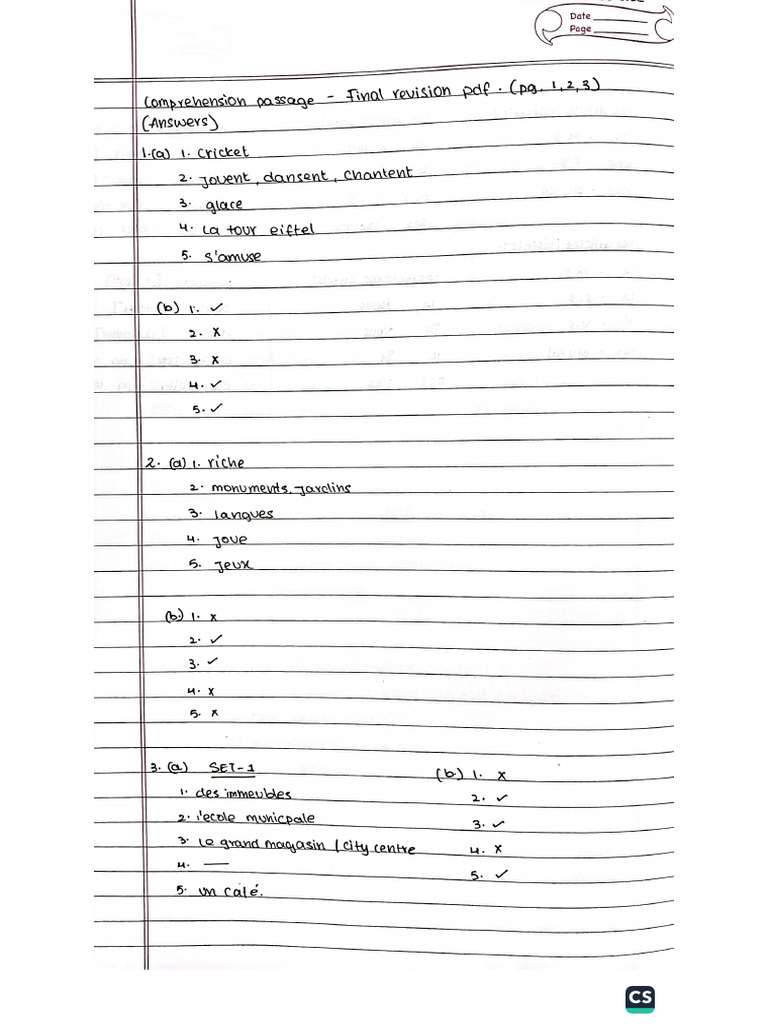 Date
Page
Comprehension passage - Final revision pdf. (pg. 1, 2, 3)
(Answers)
1.(a) 1. cricket
2. jouent, dansent, chantent
3. glace
4. La tour eiffel
5. s'amuse
(b) 1. ✓
2. x
3. x
4. ✓
5. ✓
2. (a) 1. riche
2. monuments, jardins
3. langues
4. joue
5. jeux
(b.) 1. x
2. ✓
3. ✓
4. x
5. x
3. (a) SET-1
1. des immeubles
2. l'ecole municpale
3. Le grand magasin / city centre
4. —
5. un café.
(b) 1. x
2. ✓
3. ✓
4. x
5. ✓
CS